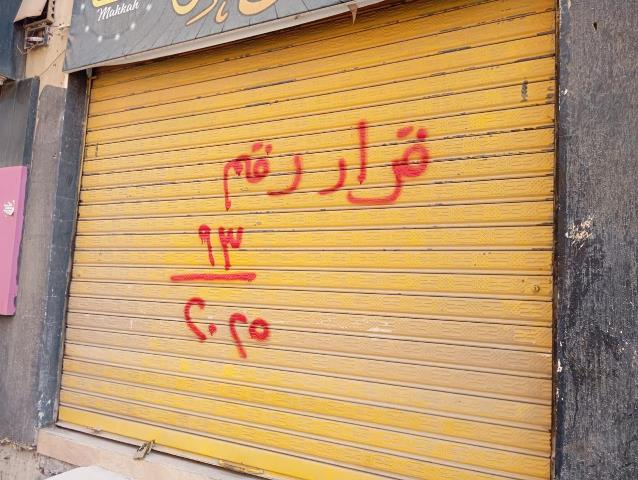 Makkah
قرار رقم
٩٣
٢٠٢٥